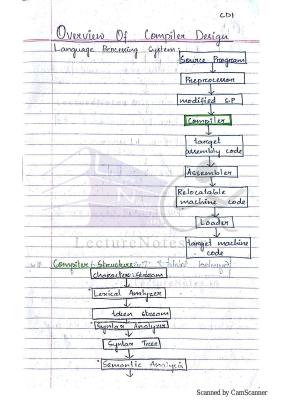 CD1
Overview Of Compiler Design
Language Processing System:
Source Program
Preprocessor
modified S.P
Compiler
target
assembly code
Assembler
Relocatable
machine code
Loader
target machine
code
LectureNotes
Compiler: Structure
character stream
Lexical Analyzer
token stream
Syntax Analyzer
Syntax Tree
Semantic Analysis
Scanned by CamScanner